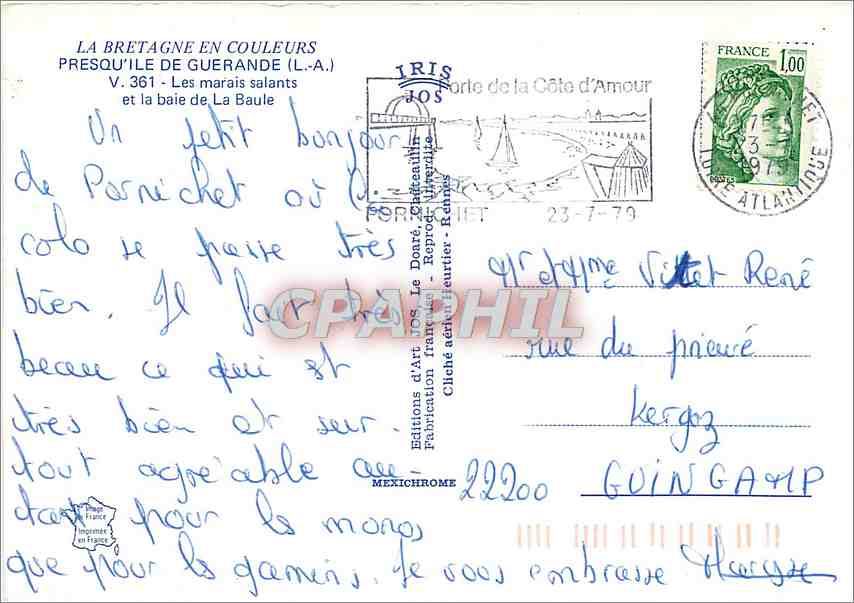 LA BRETAGNE EN COULEURS
PRESQU'ILE DE GUERANDE (L.-A.)
V. 361 - Les marais salants
et la baie de La Baule
IRIS
JOS
Porte de la Côte d'Amour
PORNICHET 23-7-79
FRANCE 1,00
LOIRE ATLANTIQUE
Un petit bonjour
de Pornichet où la
colo se passe très
bien. Il fait très
beau ce qui est
très bien et sur-
tout agréable au-
tant pour les monos
que pour les gamins. Je vous embrasse
Editions d'Art JOS, Le Doaré, Châteaulin
Fabrication française - Reprod. interdite
Cliché aérien Heurtier - Rennes
MEXICHROME
Image
de France
Imprimée
en France
Mr et Mme Vittet René
rue du prieuré
Kergoz
22200 GUINGAMP
CPAPHIL